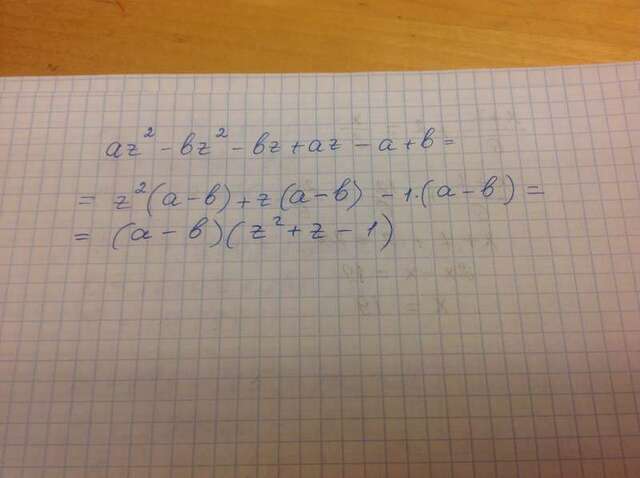 az² - bz² - bz + az - a + b =
= z²(a - b) + z(a - b) - 1·(a - b) =
= (a - b)(z² + z - 1)